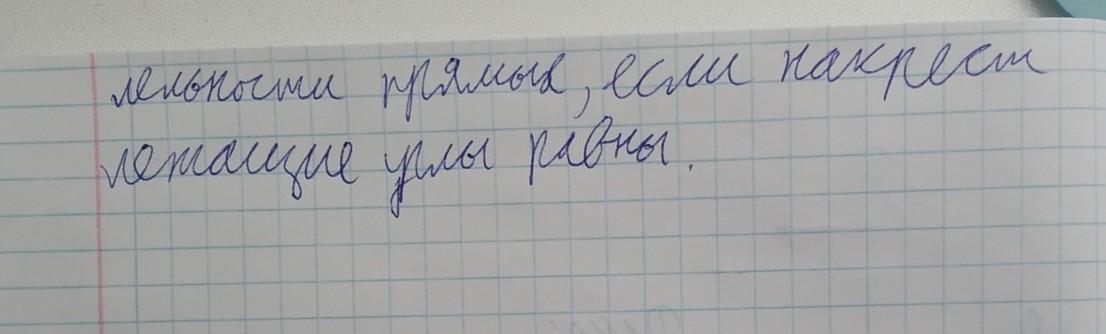 лельности прямых, если накрест
лежащие углы равны.